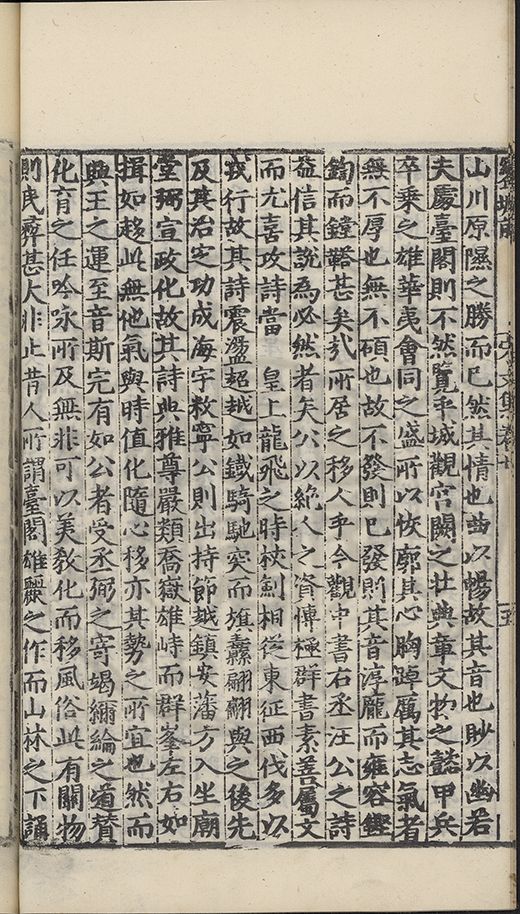 山川原隰之勝而已然其情也曲以暢故其音也眇以幽若
夫處臺閣則不然覽乎城觀宮闕之壯典章文物之懿甲兵
卒乘之雄華夷會同之盛所以恢廓其心胸踔厲其志氣者
無不厚也無不碩也故不發則已發則其音淳龐而雍容鏗
鍧而鏜鞳甚矣㢤所居之移人乎今觀中書右丞汪公之詩
益信其說為必然者矣公以絶人之資博極群書素善屬文
而尤喜攻詩當 皇上龍飛之時杖劍相從東征西伐多以
戎行故其詩震盪超越如鐵騎馳突而旗纛翩翩與之後先
及其治定功成海宇敉寧公則出持節越鎮安藩方入坐廟
堂弼宣政化故其詩典雅尊嚴類喬嶽雄峙而群峯左右如
揖如趍此無他氣與時值化隨心移亦其勢之所宜也然而
興王之運至音斯完有如公者受丞弼之寄竭彌綸之道贊
化育之任吟咏所及無非可以美教化而移風俗此有關物
則民彝甚大非止昔人所謂臺閣雄麗之作而山林之下誦